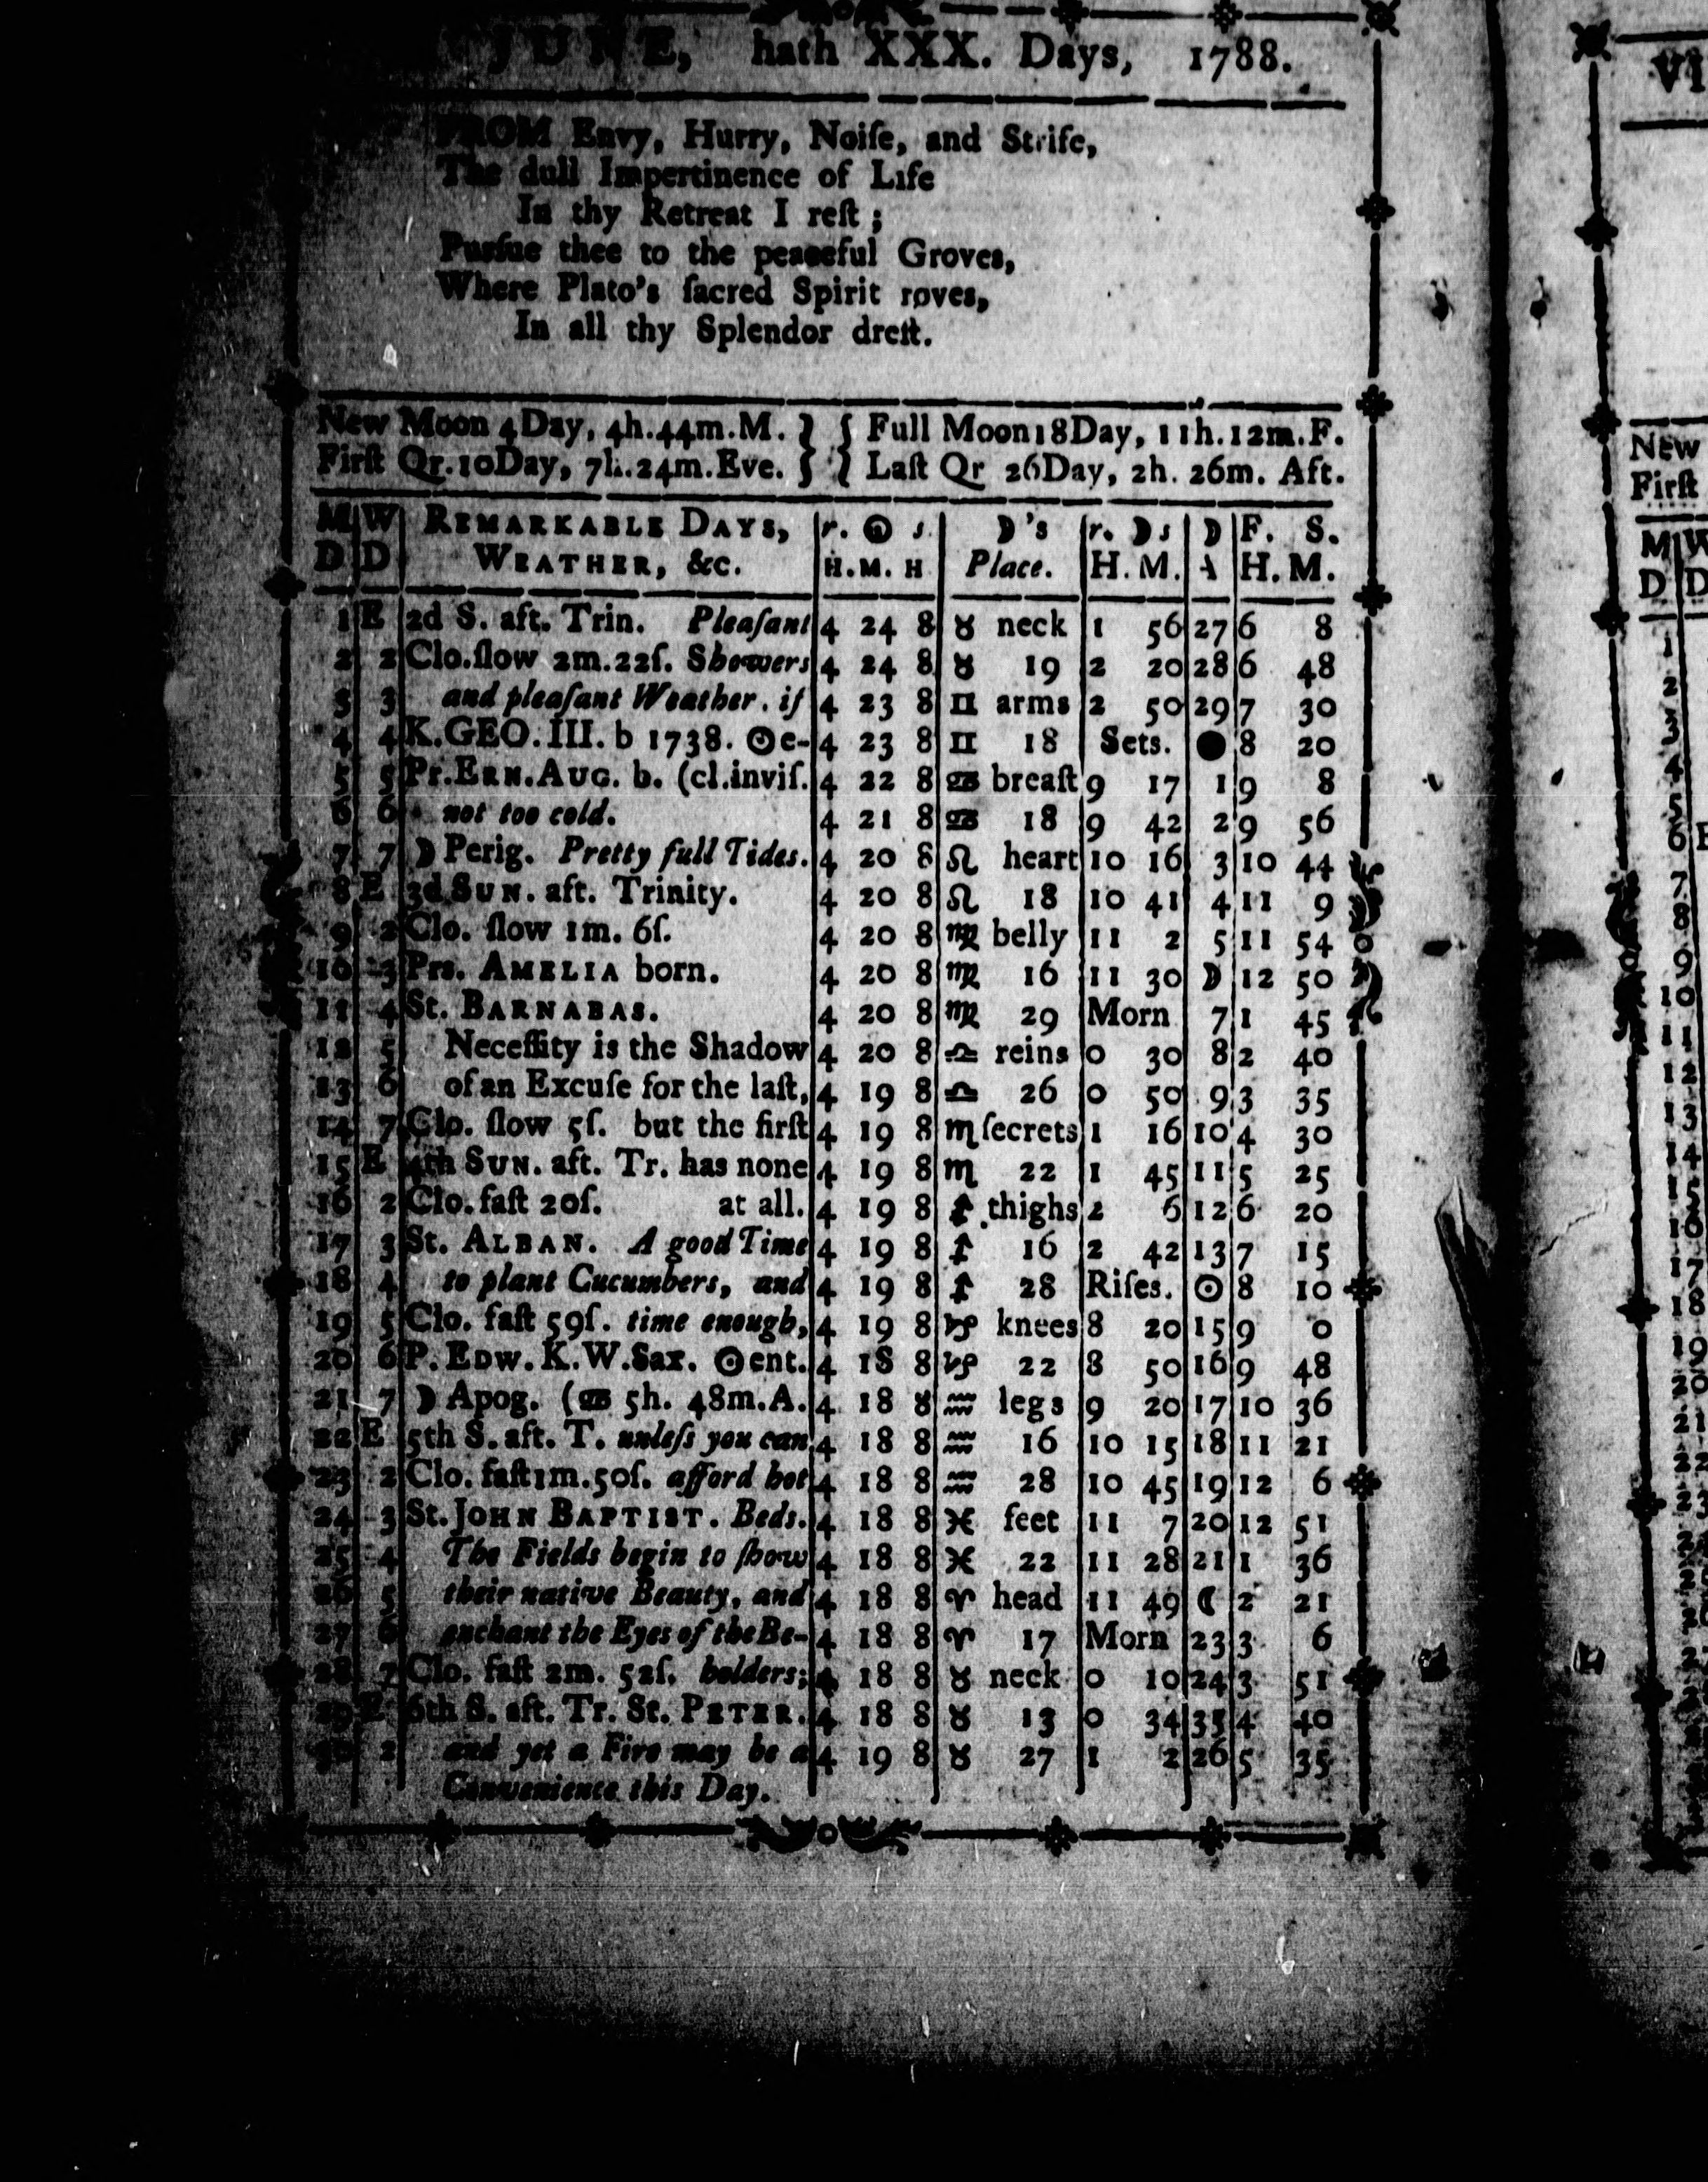 JUNE, hath XXX. Days, 1788.
FROM Envy, Hurry, Noiſe, and Strife,
The dull Impertinence of Life
In thy Retreat I reſt ;
Purſue thee to the peaceful Groves,
Where Plato's ſacred Spirit roves,
In all thy Splendor dreſt.
New Moon 4Day, 4h.44m.M. } { Full Moon18Day, 11h.12m.F.
Firſt Qr.10Day, 7h.24m.Eve. } { Laſt Qr 26Day, 2h. 26m. Aft.
M W REMARKABLE DAYS, r. ☉ s. ☽'s r. ☽ s ☽ F. S.
D D WEATHER, &c. H.M. H Place. H. M. A H. M.
1 E 2d S. aft. Trin. Pleaſant 4 24 8 ♉ neck 1 56 27 6 8
2 2 Clo.ſlow 2m.22ſ. Showers 4 24 8 ♉ 19 2 20 28 6 48
3 3 and pleaſant Weather, if 4 23 8 ♊ arms 2 50 29 7 30
4 4 K.GEO.III. b 1738. ☉e- 4 23 8 ♊ 18 Sets. ● 8 20
5 5 Pr.ERN.AUG. b. (cl.inviſ. 4 22 8 ♋ breaſt 9 17 1 9 8
6 6 not too cold. 4 21 8 ♋ 18 9 42 2 9 56
7 7 ☽ Perig. Pretty full Tides. 4 20 8 ♌ heart 10 16 3 10 44
8 E 3d SUN. aft. Trinity. 4 20 8 ♌ 18 10 41 4 11 9
9 2 Clo. ſlow 1m. 6ſ. 4 20 8 ♍ belly 11 2 5 11 54
10 3 Prs. AMELIA born. 4 20 8 ♍ 16 11 30 ☽ 12 50
11 4 St. BARNABAS. 4 20 8 ♍ 29 Morn 7 1 45
12 5 Neceſſity is the Shadow 4 20 8 ♎ reins 0 30 8 2 40
13 6 of an Excuſe for the laſt, 4 19 8 ♎ 26 0 50 9 3 35
14 7 Clo. ſlow 5ſ. but the firſt 4 19 8 ♏ ſecrets 1 16 10 4 30
15 E 4th SUN. aft. Tr. has none 4 19 8 ♏ 22 1 45 11 5 25
16 2 Clo. faſt 20ſ. at all. 4 19 8 ♐ thighs 2 6 12 6 20
17 3 St. ALBAN. A good Time 4 19 8 ♐ 16 2 42 13 7 15
18 4 to plant Cucumbers, and 4 19 8 ♐ 28 Riſes. ☉ 8 10
19 5 Clo. faſt 59ſ. time enough, 4 19 8 ♑ knees 8 20 15 9 0
20 6 P. EDW. K.W.Sax. ☉ent. 4 18 8 ♑ 22 8 50 16 9 48
21 7 ☽ Apog. (♋ 5h. 48m.A. 4 18 8 ♒ legs 9 20 17 10 36
22 E 5th S. aft. T. unleſs you can 4 18 8 ♒ 16 10 15 18 11 21
23 2 Clo. faſt1m.50ſ. afford hot 4 18 8 ♒ 28 10 45 19 12 6
24 3 St. JOHN BAPTIST. Beds. 4 18 8 ♓ feet 11 7 20 12 51
25 4 The Fields begin to ſhow 4 18 8 ♓ 22 11 28 21 1 36
26 5 their native Beauty, and 4 18 8 ♈ head 11 49 ☾ 2 21
27 6 enchant the Eyes of the Be- 4 18 8 ♈ 17 Morn 23 3 6
28 7 Clo. faſt 2m. 52ſ. holders; 4 18 8 ♉ neck 0 10 24 3 51
29 E 6th S. aft. Tr. St. PETER. 4 18 8 ♉ 13 0 34 35 4 40
30 2 and yet a Fire may be a 4 19 8 ♉ 27 1 2 26 5 35
Convenience this Day.
VI
New
Firſt
M W
D D
1
2
3
4
5
6
7
8
9
10
11
12
13
14
15
16
17
18
19
20
21
22
23